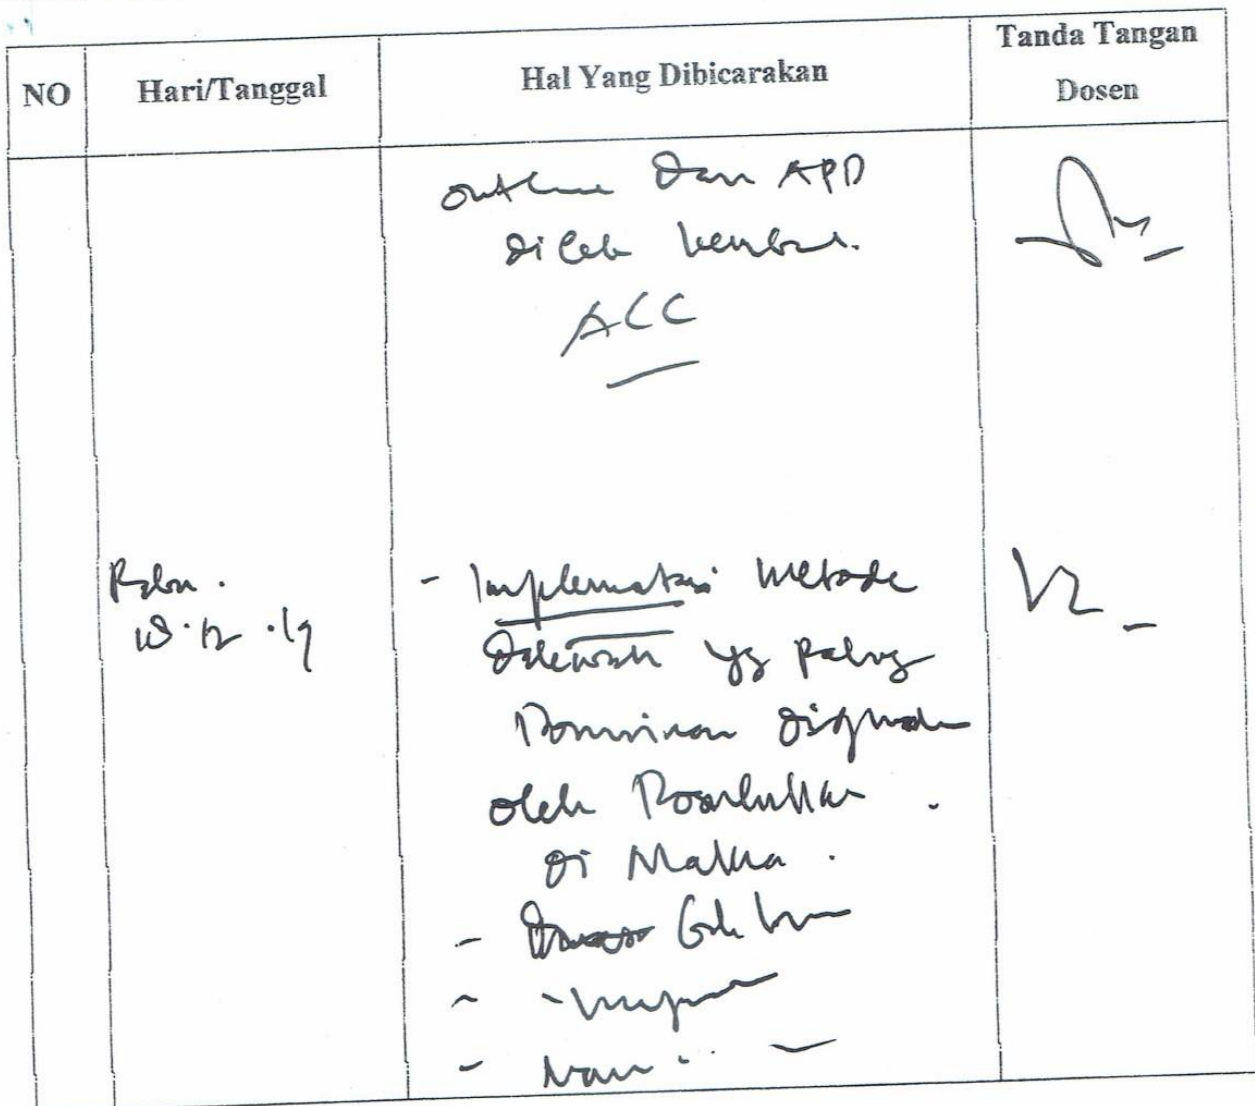 NO
Hari/Tanggal
Hal Yang Dibicarakan
Tanda Tangan
Dosen
outline Dan APD
dicek
ACC
Rabu.
18.12.19
- Implematasi Metode
Dakwah yg paling
Dominan digunakan
oleh Rosulullah
di Makka.
-
-
-